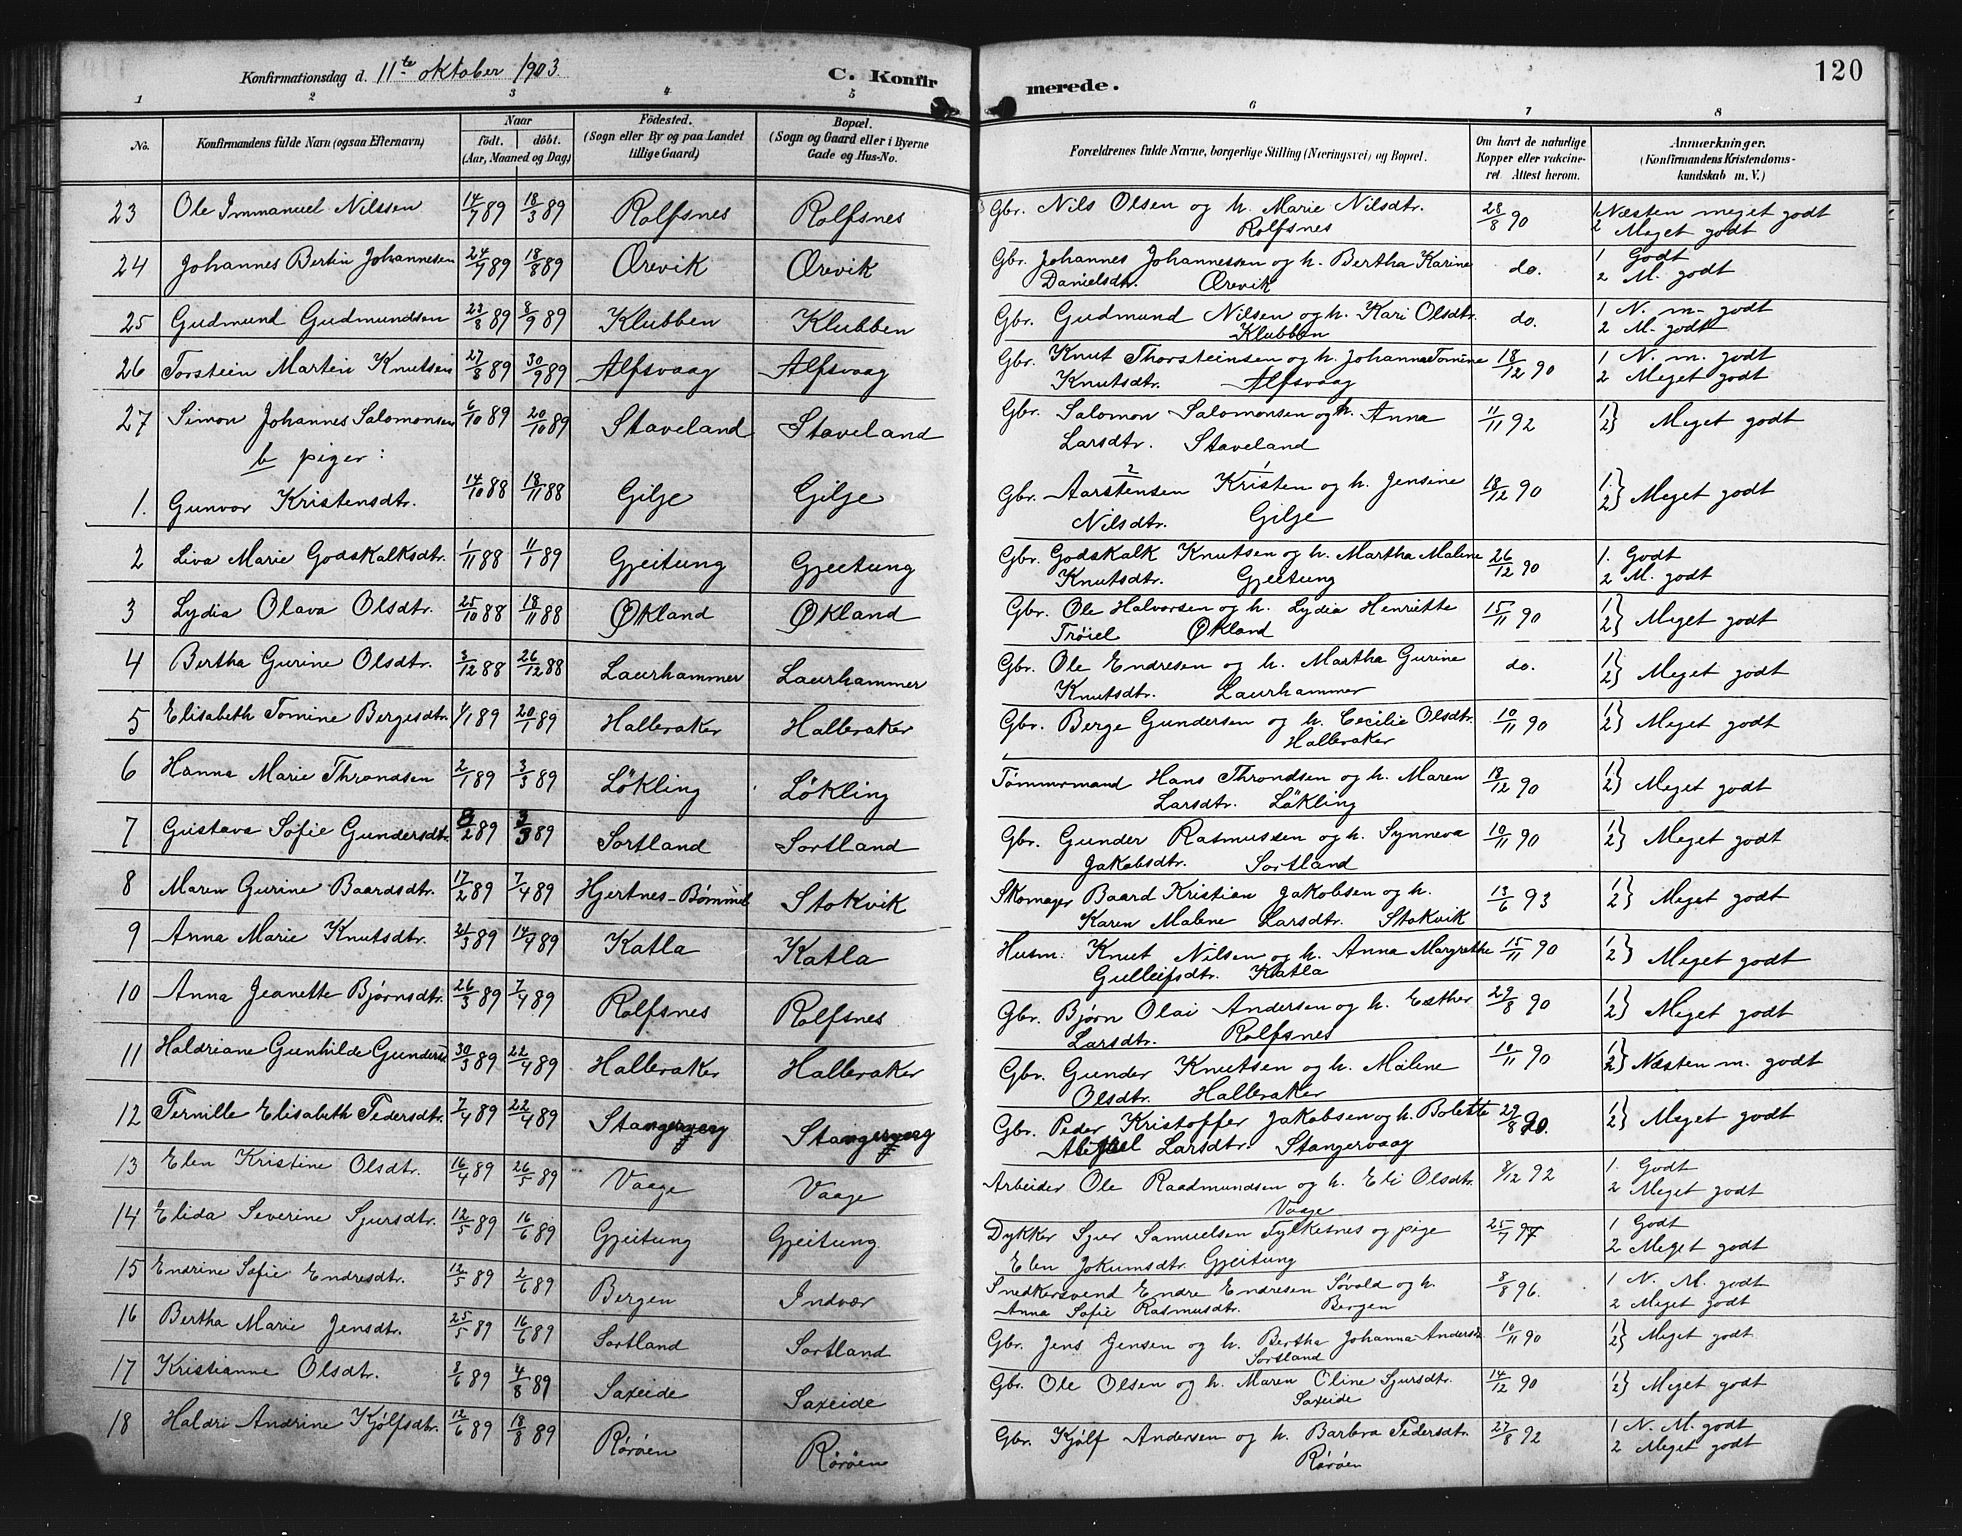 Konfirmationsdag d. 11te oktober 1903
C. Konfirmerede.
120
1 2 3 4 5 6 7 8
No. | Konfirmandens fulde Navn (ogsaa Efternavn) | Naar født. døbt. (Aar, Maaned og Dag) | Fødested. (Sogn eller By og paa Landet tillige Gaard) | Bopæl. (Sogn og Gaard eller i Byerne Gade og Hus-No. | Forældrenes fulde Navne, borgerlige Stilling (Næringsvei) og Bopæl. | Om havt de naturlige Kopper eller vakcineret. Attest herom. | Anmærkninger. (Konfirmandens Kristendomskundskab m. V.)
23 Ole Immanuel Nilssen 14/7 89 18/3 89 Rolfsnes Rolfsnes Gbr. Nils Olsen og h. Marie Nilsdtr. Rolfsnes 28/8 90 1 Næsten meget godt 2 Meget godt
24 Johannes Bertin Johannesen 24/7 89 18/8 89 Ørevik Ørevik Gbr. Johannes Johannessen og h. Bertha Karine Danielsdtr. Ørevik do. 1 Godt 2 M. godt
25 Gudmund Gudmundsen 23/8 89 8/9 89 Klubben Klubben Gbr. Gudmund Nilsen og h. Kari Olsdtr. Klubben do. 1 N. m. godt 2 M. godt
26 Torstein Martin Knutsen 27/8 89 30/9 89 Alfsvaag Alfsvaag Gbr. Knut Thorsteinsen og h. Johanna Tomine Knutsdtr. Alfsvaag 18/12 90 1 N. m. godt 2 Meget godt
27 Simon Johannes Salomonsen 6/10 89 20/10 89 Staveland Staveland Gbr. Salomon Salomonsen og h. Anna Larsdtr. Staveland 11/11 92 1 2} Meget godt
b piger:
1. Gunvor Kristensdtr. 14/10 88 18/11 88 Gilje Gilje Gbr. Aarstensen 2 Kristen 1 og h. Jensine Nilsdtr. Gilje 18/12 90 1. 2} Meget godt
2 Liva Marie Godskalksdtr. 1/11 88 11/1 89 Gjeitung Gjeitung Gbr. Godskalk Knutsen og h. Martha Malene Knutsdtr. Gjeitung 26/12 90 1. Godt 2 M. godt
3 Lydia Olava Olsdtr. 25/10 88 18/11 88 Økland Økland Gbr. Ole Halvorsen og h. Lydia Henriette Trøiel Økland 15/11 90 1 2} Meget godt
4 Bertha Gurine Olsdtr. 3/12 88 26/12 88 Laurhammer Laurhammer Gbr. Ole Endresen og h. Martha Gurine Knutsdtr. Laurhammer do. 1 2} Meget godt
5 Elisabeth Tomine Bergesdtr. 4/1 89 20/1 89 Halleraker Halleraker Gbr. Berge Gundersen og h. Cecilie Olsdtr. Halleraker 10/11 90 1 2} Meget godt
6 Hanna Marie Throndsen 2/1 89 3/3 89 Løkling Løkling Tømmermand Hans Throndsen og h. Maren Larsdtr. Løkling 18/12 90 1 2} Meget godt
7 Gustava Sofie Gundersdtr. 8/2 89 3/3 89 Sortland Sortland Gbr. Gunder Rasmussen og h. Synneva Jakobsdtr. Sortland 10/11 90 1 2} Meget godt
8 Maren Gurine Baardsdtr. 17/2 89 7/4 89 Hjertnes-Bømmel Stokvik Skomager Baard Kristian Jakobsen og h. Karen Malene Larsdtr. Stokvik 13/6 93 1 2} Meget godt
9 Anna Marie Knutsdtr. 21/3 89 14/4 89 Katla Katla Husm: Knut Nilsen og h. Anna Margrethe Gulleifsdtr. Katla 15/11 90 1 2} Meget godt
10 Anna Jeanette Bjørnsdtr. 26/3 89 7/4 89 Rolfsnes Rolfsnes Gbr. Bjørn Olai Andersen og h. Esther Larsdtr. Rolfsnes 29/8 90 1 2} Meget godt
11 Haldriane Gunhilde Gundersd. 30/3 89 22/4 89 Halleraker Halleraker Gbr. Gunder Knutsen og h. Malene Olsdtr. Halleraker 10/11 90 1 2} Næsten m. godt
12 Pernille Elisabeth Pedersdtr. 7/4 89 22/4 89 Stangervaag Stangervaag Gbr. Peder Kristoffer Jakobsen og h. Bolette Larsdtr. Stangervaag 29/8 90. 1 2} Meget godt
13 Elen Kristine Olsdtr. 16/4 89 26/5 89 Vaage Vaage Arbeider Ole Raadmundsen og h. Eli Olsdtr. Vaage 8/12 92 1. Godt 2 Meget godt
14 Elida Severine Sjursdtr. 12/5 89 16/6 89 Gjeitung Gjeitung Dykker Sjur Samuelsen Fylkesnes og pige Elen Jokumsdtr. Gjeitung 25/7 97 1 Godt 2 Meget godt
15 Endrine Sofie Endresdtr. 12/5 89 2/6 89 Bergen Indvær Snedkersvend Endre Endresen Søvold og h. Anna Sofie Rasmusdtr. Bergen 8/8 96. 1 N. M. godt 2 Meget godt
16 Bertha Marie Jensdtr. 25/5 89 16/6 89 Sortland Sortland Gbr. Jens Jensen og h. Bertha Johanna Andersd. Sortland 10/11 90 1 2} Meget godt
17 Kristianne Olsdtr. 8/6 89 4/8 89 Saxeide Saxeide Gbr. Ole Olsen og h. Maren Oline Sjursdtr. Saxeide 14/12 90 1 2} Meget godt
18 Haldri Andrine Kjølfsdtr. 12/6 89 18/8 89 Rørøen Rørøen Gbr. Kjølf Andersen og h. Barbra Pedersdtr. Rørøen 27/8 92 1 N. M. godt 2 Meget godt